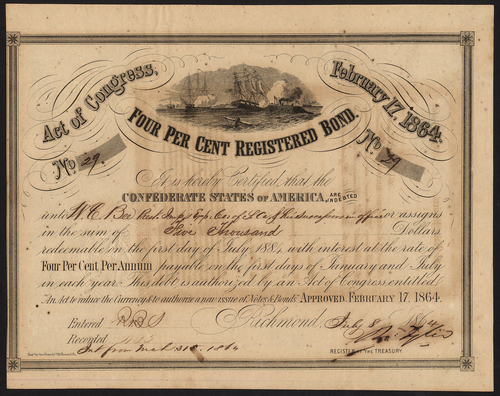 Act of Congress,
February 17, 1864.
FOUR PER CENT REGISTERED BOND.
No. 29.
No. 29
It is hereby Certified, that the
CONFEDERATE STATES OF AMERICA, ARE INDEBTED
unto W. C. Bee or assigns
in the sum of Five Thousand Dollars
redeemable on the first day of July 1884, with interest at the rate of
Four Per Cent. Per Annum payable on the first days of January and July
in each year. This debt is authorized by an Act of Congress entitled
"An Act to reduce the Currency & to authorize a new issue of Notes & Bonds" APPROVED, FEBRUARY 17, 1864.
Entered
Richmond, July 8 1864
Recorded
Int from 1864
REGISTER OF THE TREASURY.